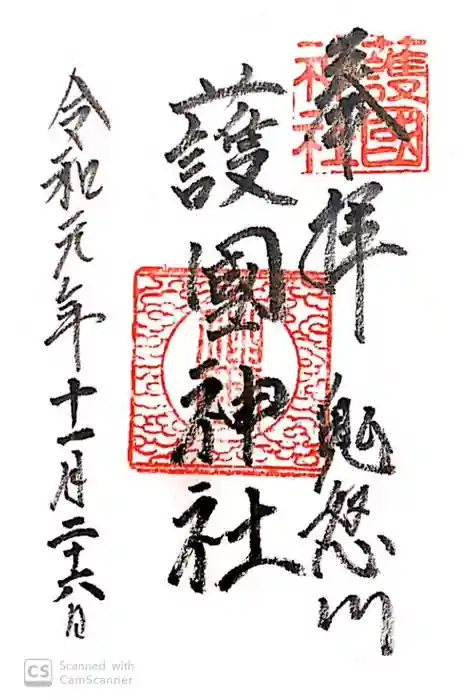 奉拝 鬼怒川
護國神社
護國神社
令和元年十一月二十六日
CS Scanned with
CamScanner